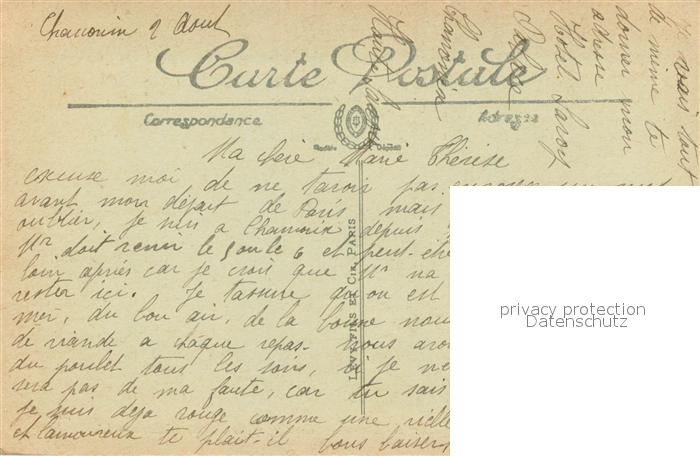 Chamonix 2 Aout
Carte Postale
Correspondance
Adresse
Modèle Déposé
Ma chère Marie Thérèse
excuse moi de ne t'avoir pas
avant mon départ de Paris mais
oublier, je suis a Chamonix depuis
Mr doit venir le 5 ou le 6 et peut-être
loin après car je crois que Mr na
rester ici. Je t'assure qu'on est
du bon air, de la bonne
de viande a chaque repas. Nous
du poulet tous les soirs, si je ne
sera pas de ma faute, car tu sais
je suis deja rouge comme une vieille
et l'amoureux te plait-il bons baisers
je vais tout
de même te
donner mon
adresse
Hotel Savoy
Palace
Chamonix
Haute Savoie
LEVY FILS ET CIE PARIS
privacy protection
Datenschutz